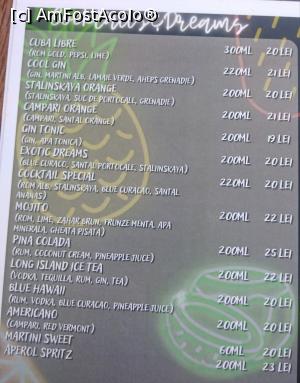 [c] AmFostAcolo®
& Dreams
CUBA LIBRE 300ML 20 LEI
(ROM GOLD, PEPSI, LIME)
COOL GIN 220ML 21 LEI
(GIN, MARTINI ALB, LAMAIE VERDE, AHEPS GRENADIE)
STALINSKAYA ORANGE 200ML 20 LEI
(STALINSKAYA, SUC DE PORTOCALE, GRENADIE)
CAMPARI ORANGE 200ML 21 LEI
(CAMPARI, SANTAL ORANGE)
GIN TONIC 200ML 19 LEI
(GIN, APA TONICA)
EXOTIC DREAMS 200ML 20 LEI
(BLUE CURACO, SANTAL PORTOCALE, STALINSKAYA)
COCKTAIL SPECIAL 220ML 20 LEI
(ROM ALB, STALINSKAYA, BLUE CURACAO, SANTAL
ANANAS)
MOJITO 200ML 22 LEI
(ROM, LIME, ZAHAR BRUN, FRUNZE MENTA, APA
MINERALA, GHEATA PISATA)
PINA COLADA 200ML 25 LEI
(RUM, COCONUT CREAM, PINEAPPLE JUICE)
LONG ISLAND ICE TEA 200ML 22 LEI
(VODKA, TEQUILLA, RUM, GIN, TEA)
BLUE HAWAII 200ML 20 LEI
(RUM, VODKA, BLUE CURACAO, PINEAPPLE JUICE)
AMERICANO 200ML 20 LEI
(CAMPARI, RED VERMONT)
MARTINI SWEET 60ML 20 LEI
APEROL SPRITZ 200ML 23 LEI